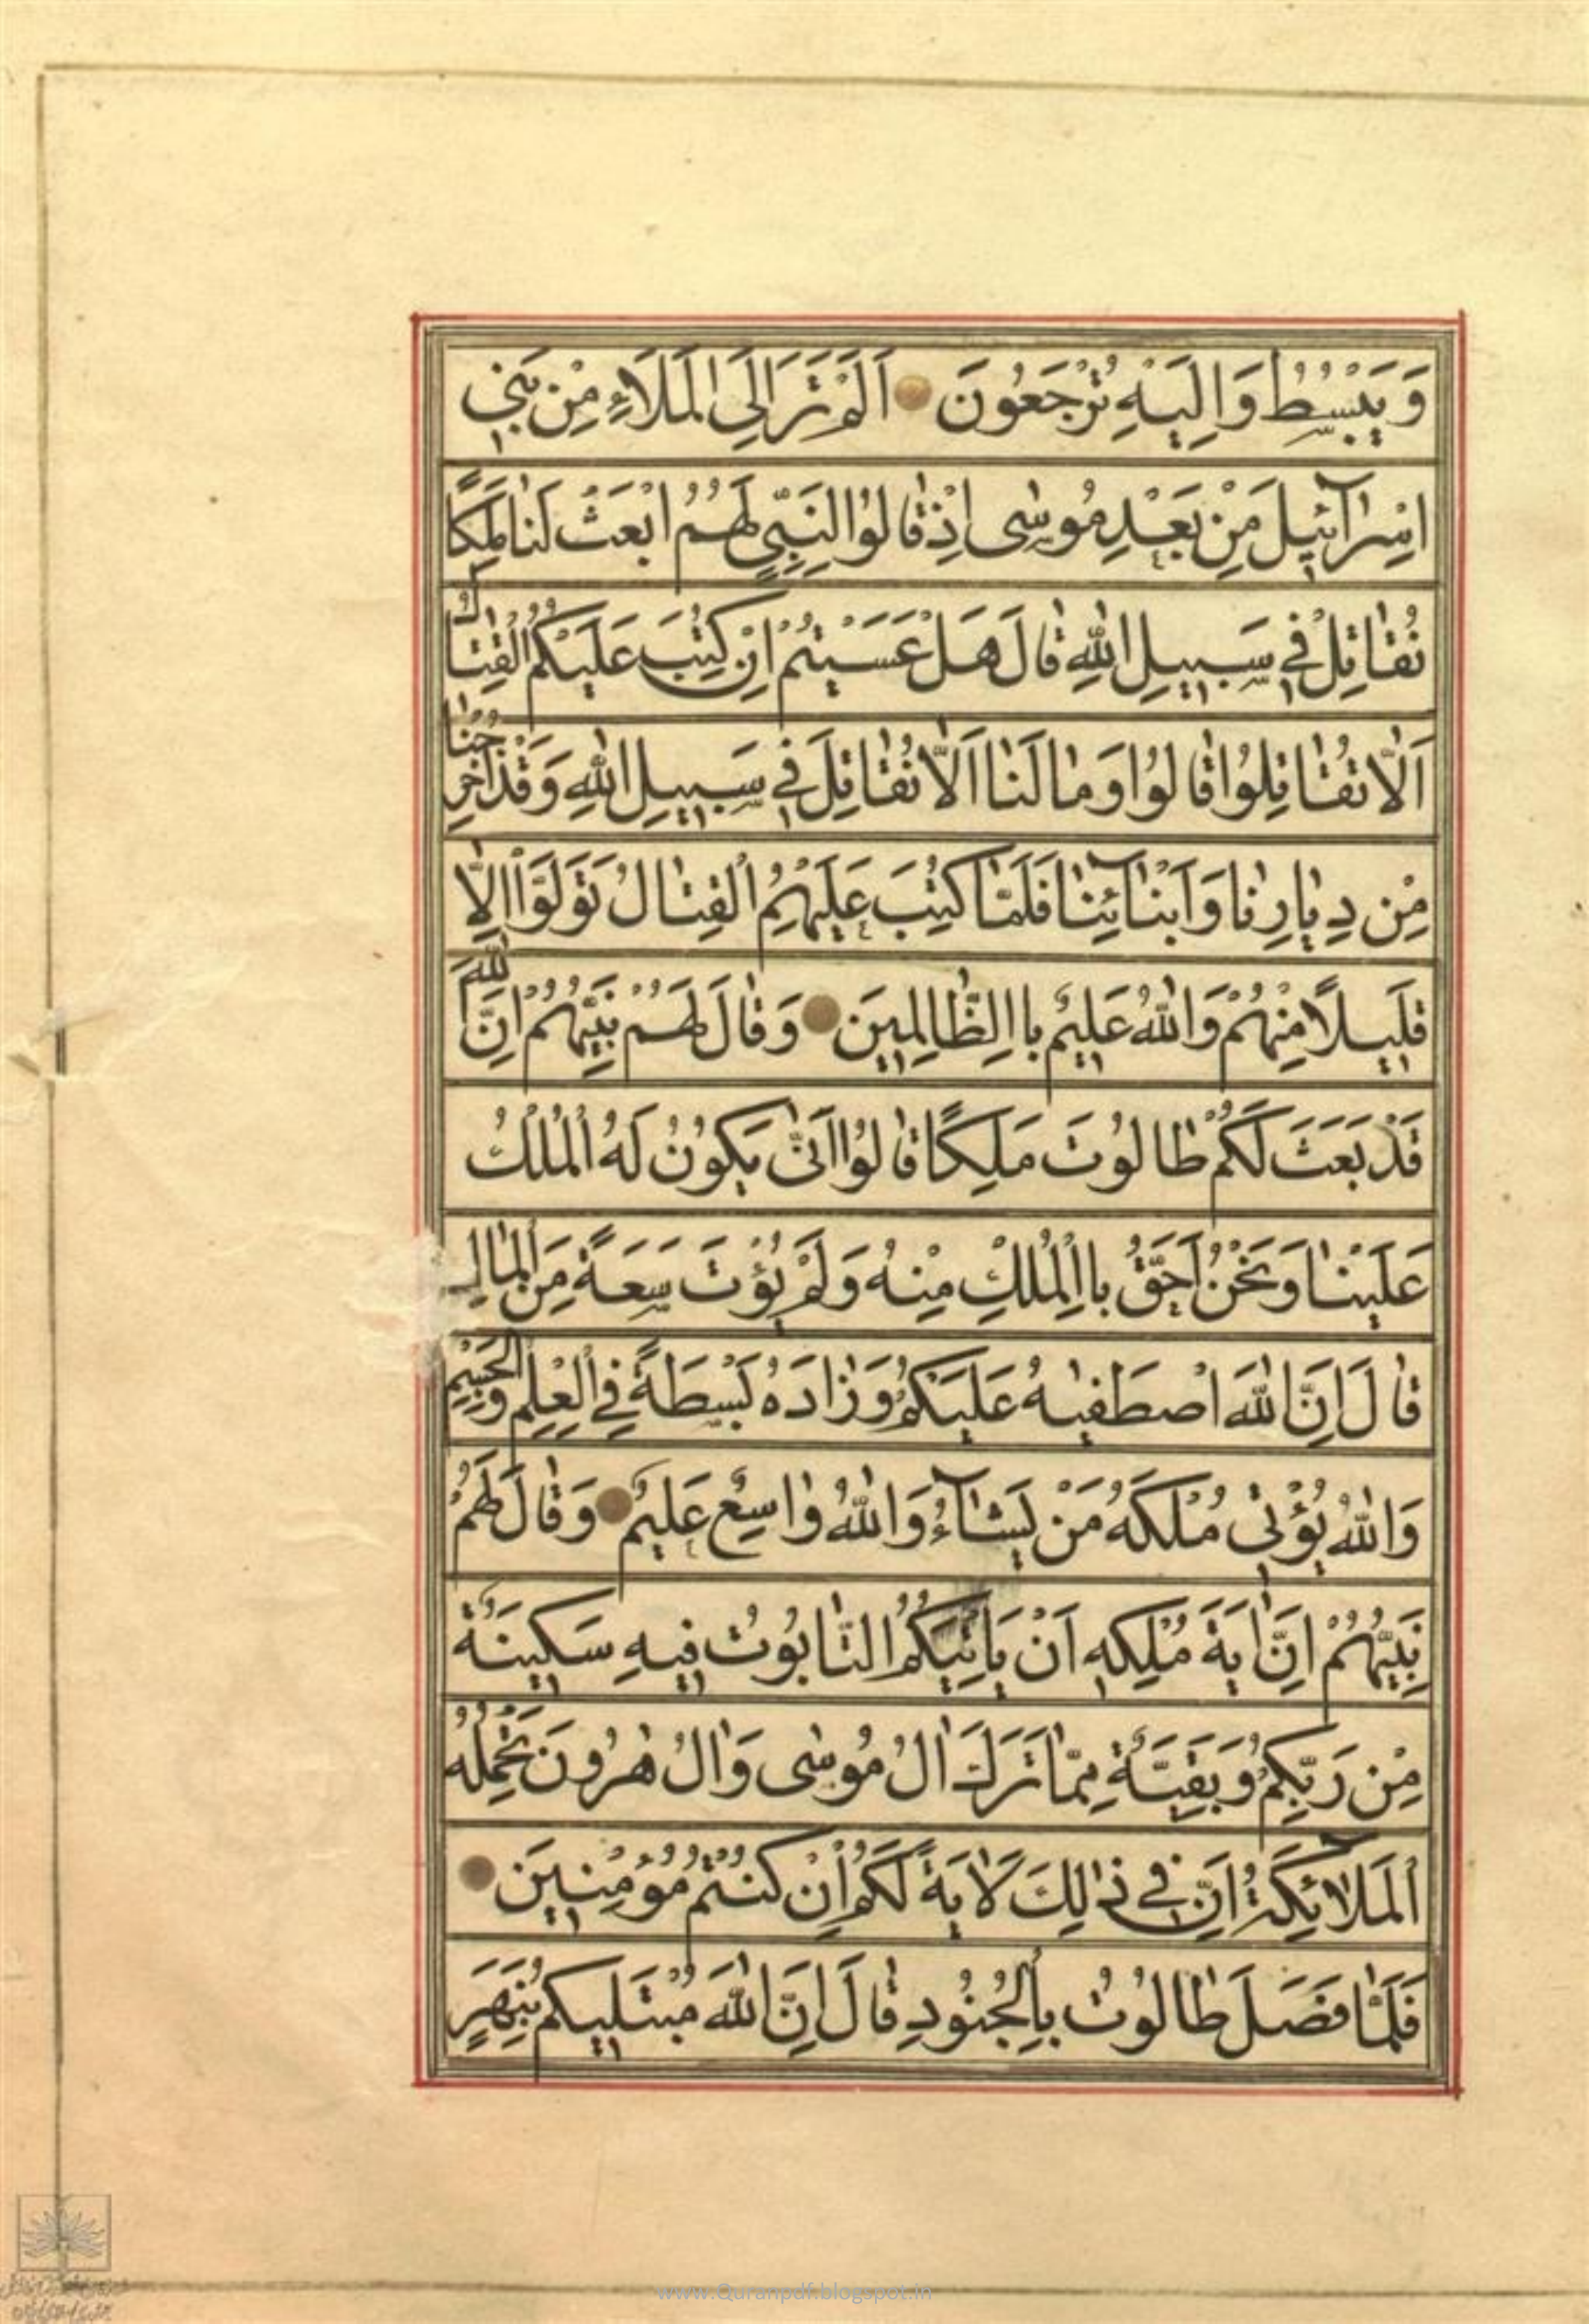 وَيَبْسُطُ وَاِلَيْهِ تُرْجَعُونَ اَلَمْ تَرَ اِلَى الْمَلَاءِ مِنْ بَنِي
اِسْرَآئِيلَ مِنْ بَعْدِ مُوسٰى اِذْ قٰالُوا لِنَبِيٍّ لَهُمُ ابْعَثْ لَنٰا مَلِكًا
نُقٰاتِلْ فِي سَبِيلِ اللّٰهِ قٰالَ هَلْ عَسَيْتُمْ اِنْ كُتِبَ عَلَيْكُمُ الْقِتٰالُ
اَلّٰا تُقٰاتِلُوا قٰالُوا وَمٰا لَنٰا اَلّٰا نُقٰاتِلَ فِي سَبِيلِ اللّٰهِ وَقَدْ اُخْرِجْنٰا
مِنْ دِيٰارِنٰا وَاَبْنٰآئِنٰا فَلَمّٰا كُتِبَ عَلَيْهِمُ الْقِتٰالُ تَوَلَّوْا اِلّٰا
قَلِيلًا مِنْهُمْ وَاللّٰهُ عَلِيمٌ بِاالظّٰالِمِينَ وَقٰالَ لَهُمْ نَبِيُّهُمْ اِنَّ اللّٰهَ
قَدْ بَعَثَ لَكُمْ طٰالُوتَ مَلِكًا قٰالُوا اَنّٰى يَكُونُ لَهُ الْمُلْكُ
عَلَيْنٰا وَنَحْنُ اَحَقُّ بِاالْمُلْكِ مِنْهُ وَلَمْ يُؤْتَ سَعَةً مِنَ الْمٰالِ
قٰالَ اِنَّ اللّٰهَ اصْطَفٰيهُ عَلَيْكُمْ وَزٰادَهُ بَسْطَةً فِي الْعِلْمِ وَالْجِسْمِ
وَاللّٰهُ يُؤْتِي مُلْكَهُ مَنْ يَشٰآءُ وَاللّٰهُ وٰاسِعٌ عَلِيمٌ وَقٰالَ لَهُمْ
نَبِيُّهُمْ اِنَّ اٰيَةَ مُلْكِهِ اَنْ يَاْتِيَكُمُ التّٰابُوتُ فِيهِ سَكِينَةٌ
مِنْ رَبِّكُمْ وَبَقِيَّةٌ مِمّٰا تَرَكَ اٰلُ مُوسٰى وَاٰلُ هٰرُونَ تَحْمِلُهُ
الْمَلٰآئِكَةُ اِنَّ فِي ذٰالِكَ لَاٰيَةً لَكُمْ اِنْ كُنْتُمْ مُؤْمِنِينَ
فَلَمّٰا فَصَلَ طٰالُوتُ بِالْجُنُودِ قٰالَ اِنَّ اللّٰهَ مُبْتَلِيكُمْ بِنَهَرٍ
www.Quranpdf.blogspot.in